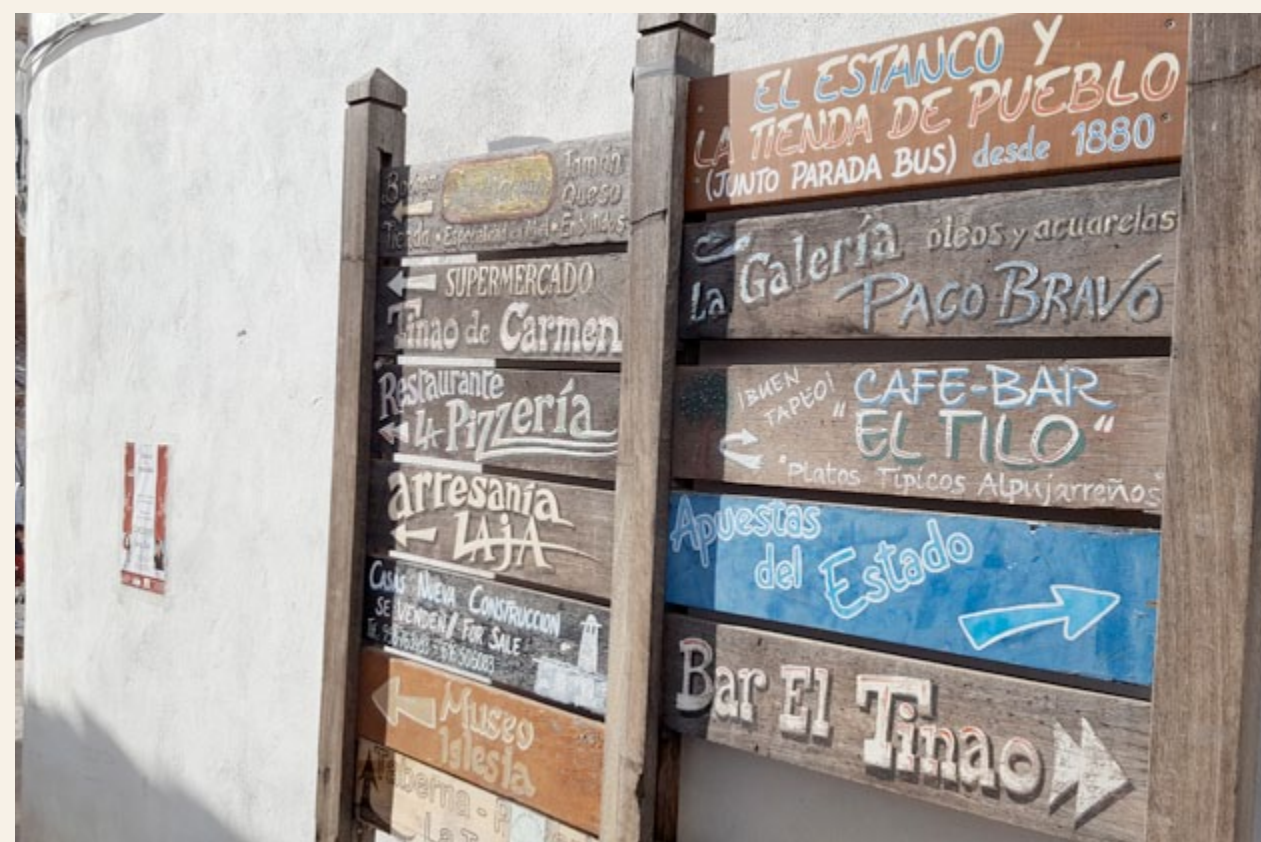 Jamón
Queso
Tienda • Especialidad en Miel • Embutidos
SUPERMERCADO
Tinao de Carmen
Restaurante
La Pizzería
arresanía
LAJA
CASAS NUEVA CONSTRUCCION
SE VENDEN / FOR SALE
Museo
Iglesia
Taberna -
La
EL ESTANCO Y
LA TIENDA DE PUEBLO
(JUNTO PARADA BUS) desde 1880
La Galería óleos y acuarelas
PACO BRAVO
¡BUEN
TAPEO!
CAFE-BAR
"EL TILO"
"Platos Típicos Alpujarreños"
Apuestas
del Estado
Bar El Tinao